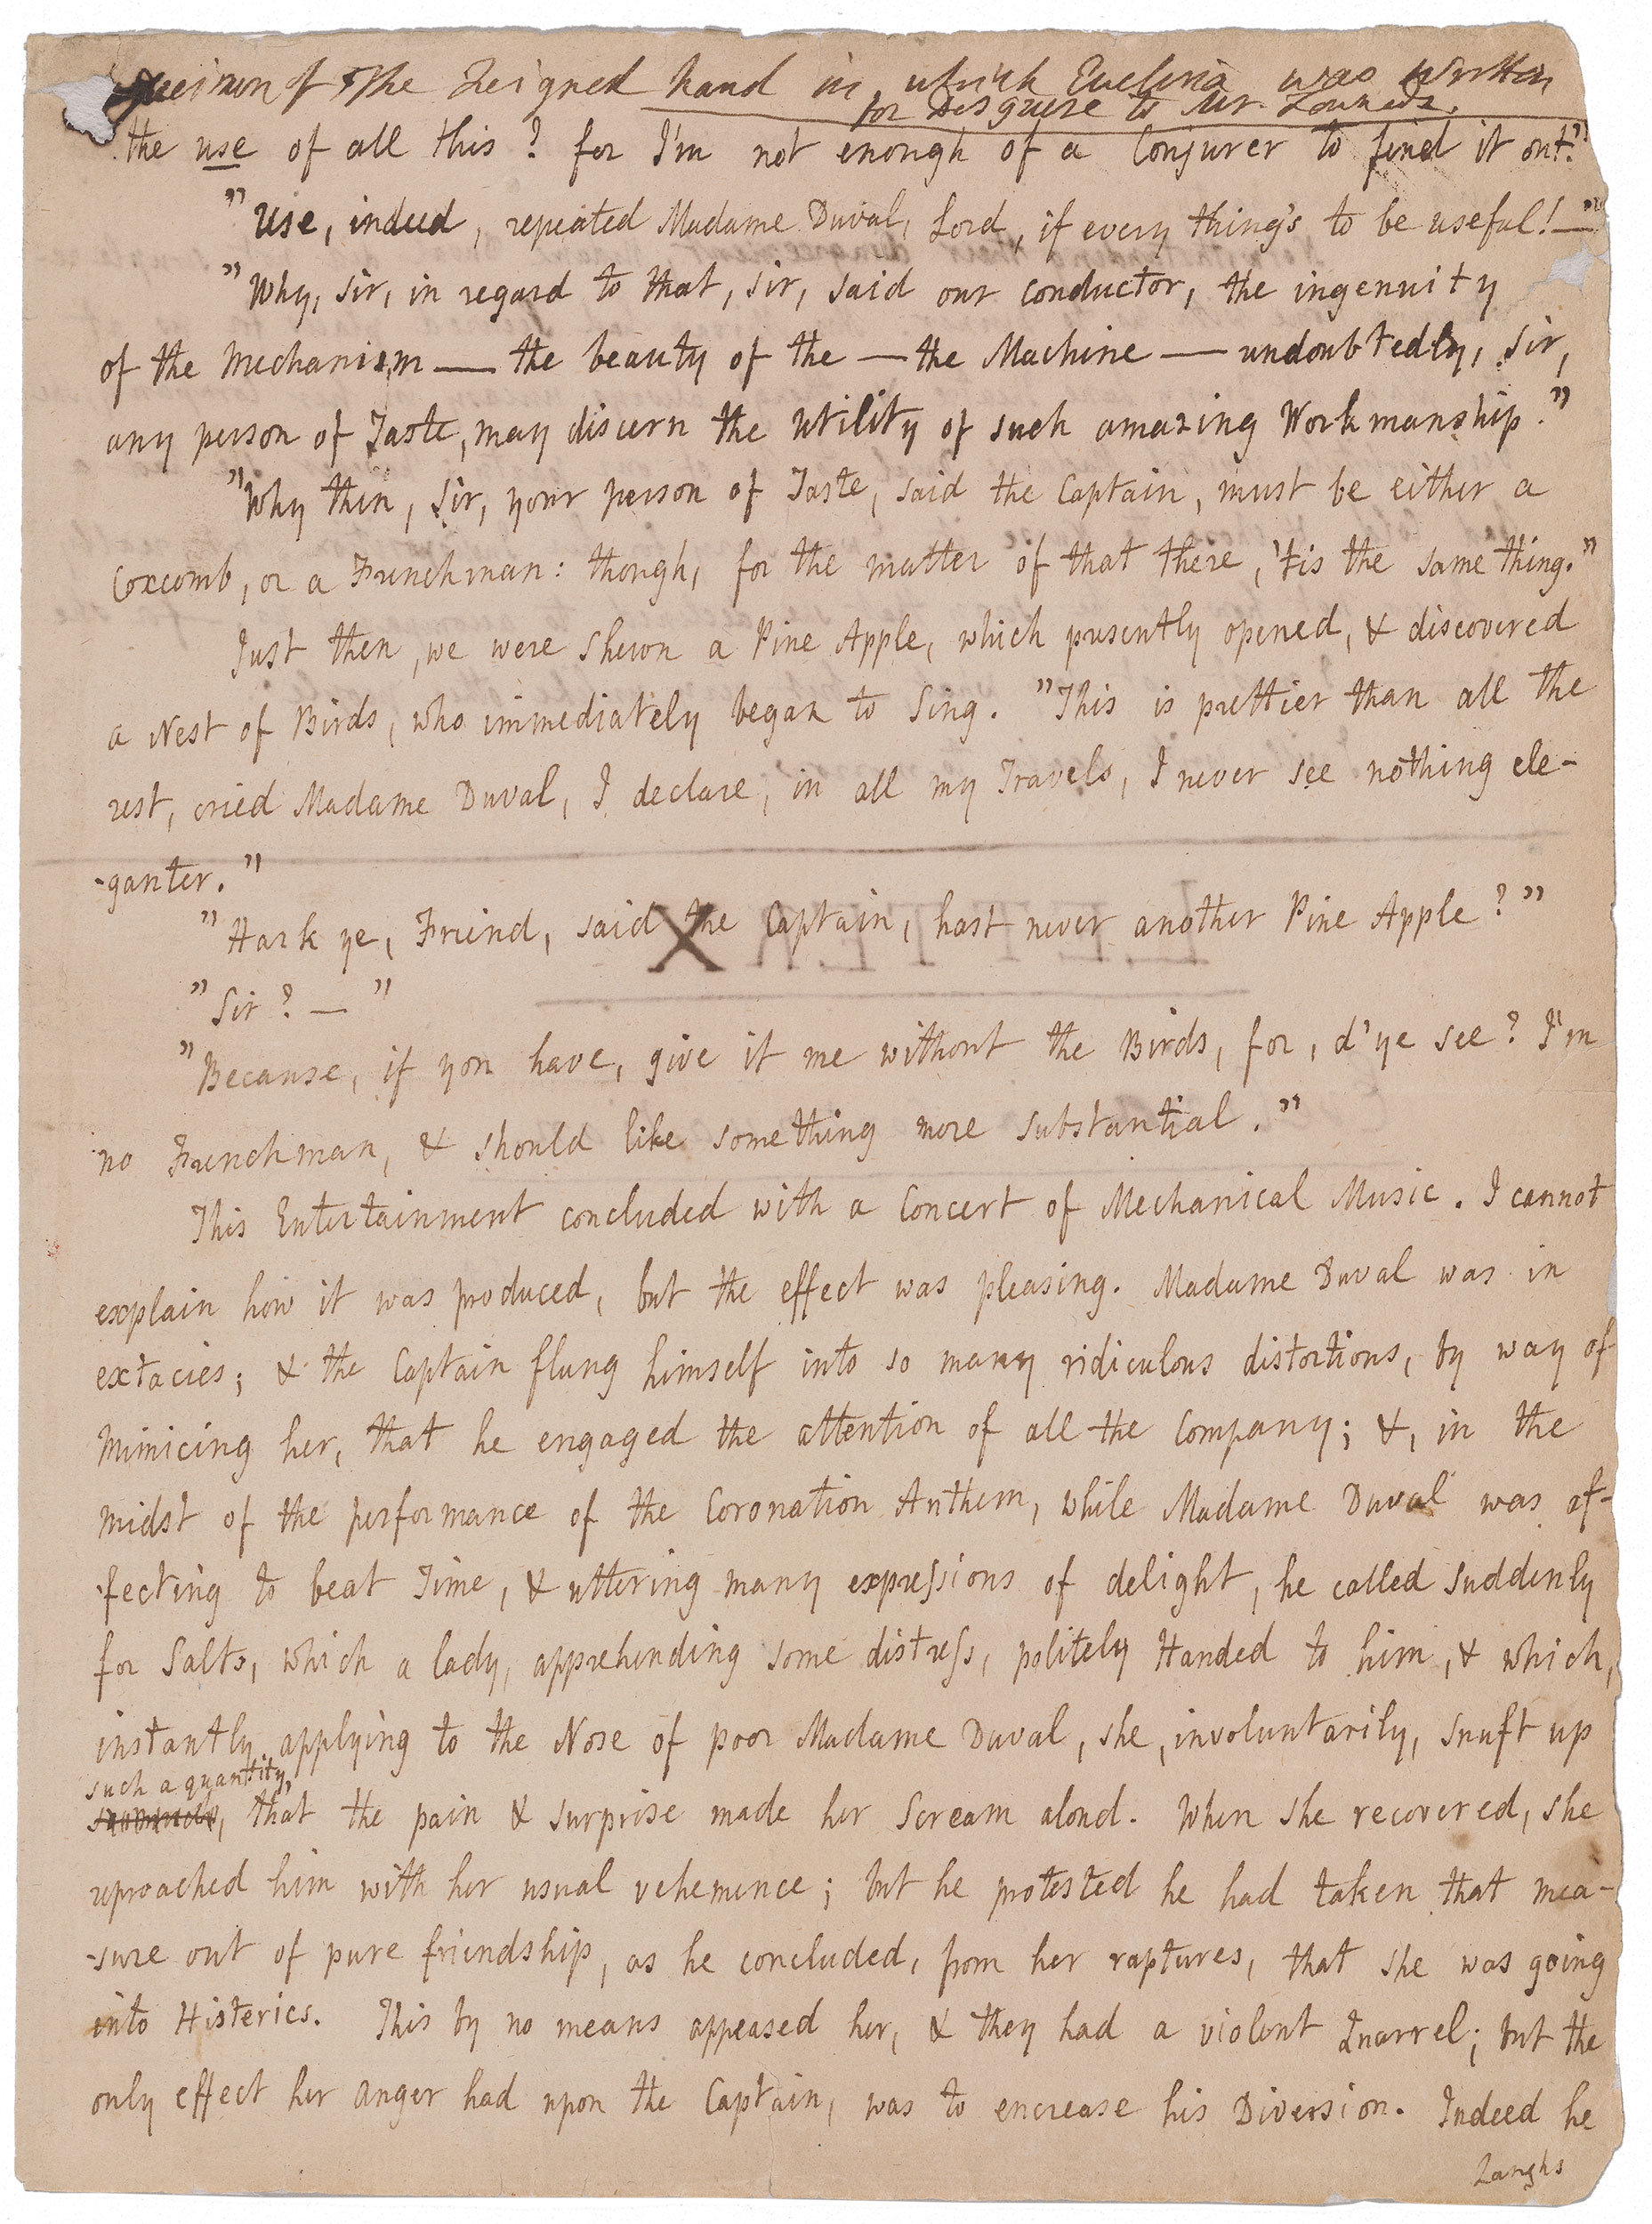 Specimen of The Feigned hand in which Evelina was written
for Disguise to Mr. Lowndes.
the use of all this? for I'm not enough of a Conjurer to find it out."
"Use, indeed, repeated Madame Duval, Lord, if every thing's to be useful!—"
"Why, Sir, in regard to that, Sir, said our conductor, the ingenuity
of the Mechanism — the beauty of the — the Machine — undoubtedly, Sir,
any person of Taste, may discern the utility of such amazing Workmanship."
"Why then, Sir, your person of Taste, said the Captain, must be either a
Coxcomb, or a Frenchman: though, for the matter of that there, 'tis the same thing."
Just then, we were shewn a Pine Apple, which presently opened, & discovered
a Nest of Birds, who immediately began to Sing. "This is prettier than all the
rest, cried Madame Duval, I declare, in all my Travels, I never see nothing ele-
-ganter."
"Hark ye, Friend, said the Captain, hast never another Pine Apple?"
"Sir?—"
"Because, if you have, give it me without the Birds, for, d'ye see? I'm
no Frenchman, & should like something more substantial."
This Entertainment concluded with a Concert of Mechanical Music. I cannot
explain how it was produced, but the effect was pleasing. Madame Duval was in
extacies; & the Captain flung himself into so many ridiculous distortions, by way of
Mimicing her, that he engaged the attention of all the Company; &, in the
midst of the performance of the Coronation Anthem, while Madame Duval was af-
-fecting to beat Time, & uttering many expressions of delight, he called suddenly
for Salts, which a lady, apprehending some distress, politely Handed to him, & which,
instantly applying to the Nose of poor Madame Duval, she, involuntarily, snuft up
such a quantity,
that the pain & surprise made her Scream aloud. When she recovered, she
reproached him with her usual vehemence; but he protested he had taken that mea-
-sure out of pure friendship, as he concluded, from her raptures, that she was going
into Histerics. This by no means appeased her, & they had a violent Quarrel; but the
only effect her anger had upon the Captain, was to encrease his Diversion. Indeed he
Laughs